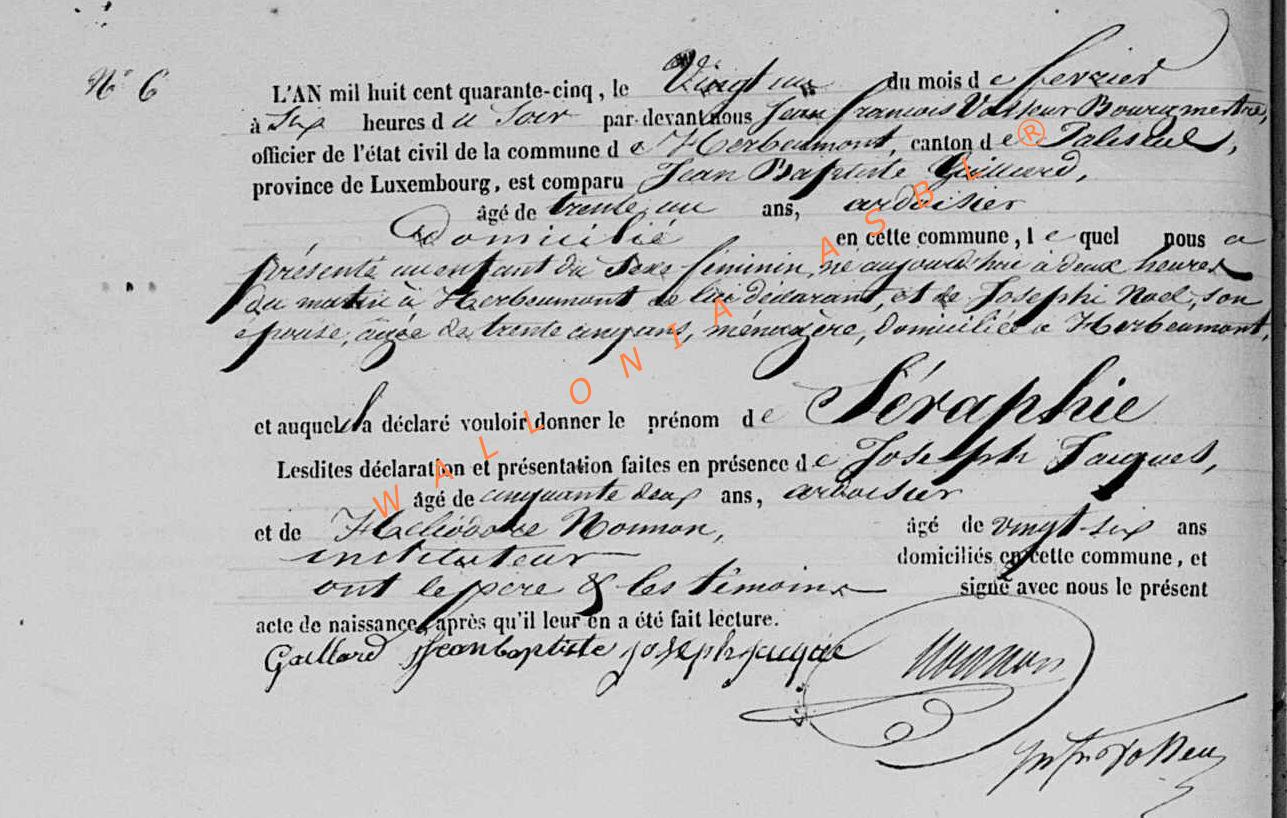 N° 6
L'AN mil huit cent quarante-cinq, le Vingt un du mois de fevrier
à Six heures du Soir par-devant nous Jean françois Bourgmestre,
officier de l'état civil de la commune de Herbeumont, canton de Paliseul,
province de Luxembourg, est comparu Jean Baptiste Guillard,
âgé de trente un ans, ardoisier
Domicilié en cette commune, lequel nous a
présenté un enfant du Sexe féminin, né aujourd'hui à deux heures
du matin à Herbeumont de lui déclarant, et de Josephe Noel, son
épouse, agée de trente cinq ans, ménagère, domiciliée à Herbeumont,
et auquel il a déclaré vouloir donner le prénom de Séraphie
Lesdites déclaration et présentation faites en présence de Joseph Jacques,
âgé de cinquante deux ans, ardoisier
et de Héliodore Noumon, âgé de vingt-six ans
instituteur domiciliés en cette commune, et
ont le père & les témoins signé avec nous le présent
acte de naissance, après qu'il leur en a été fait lecture.
Gaillard Jean baptiste joseph jaque Noumon
WALLONIA ASBL ®